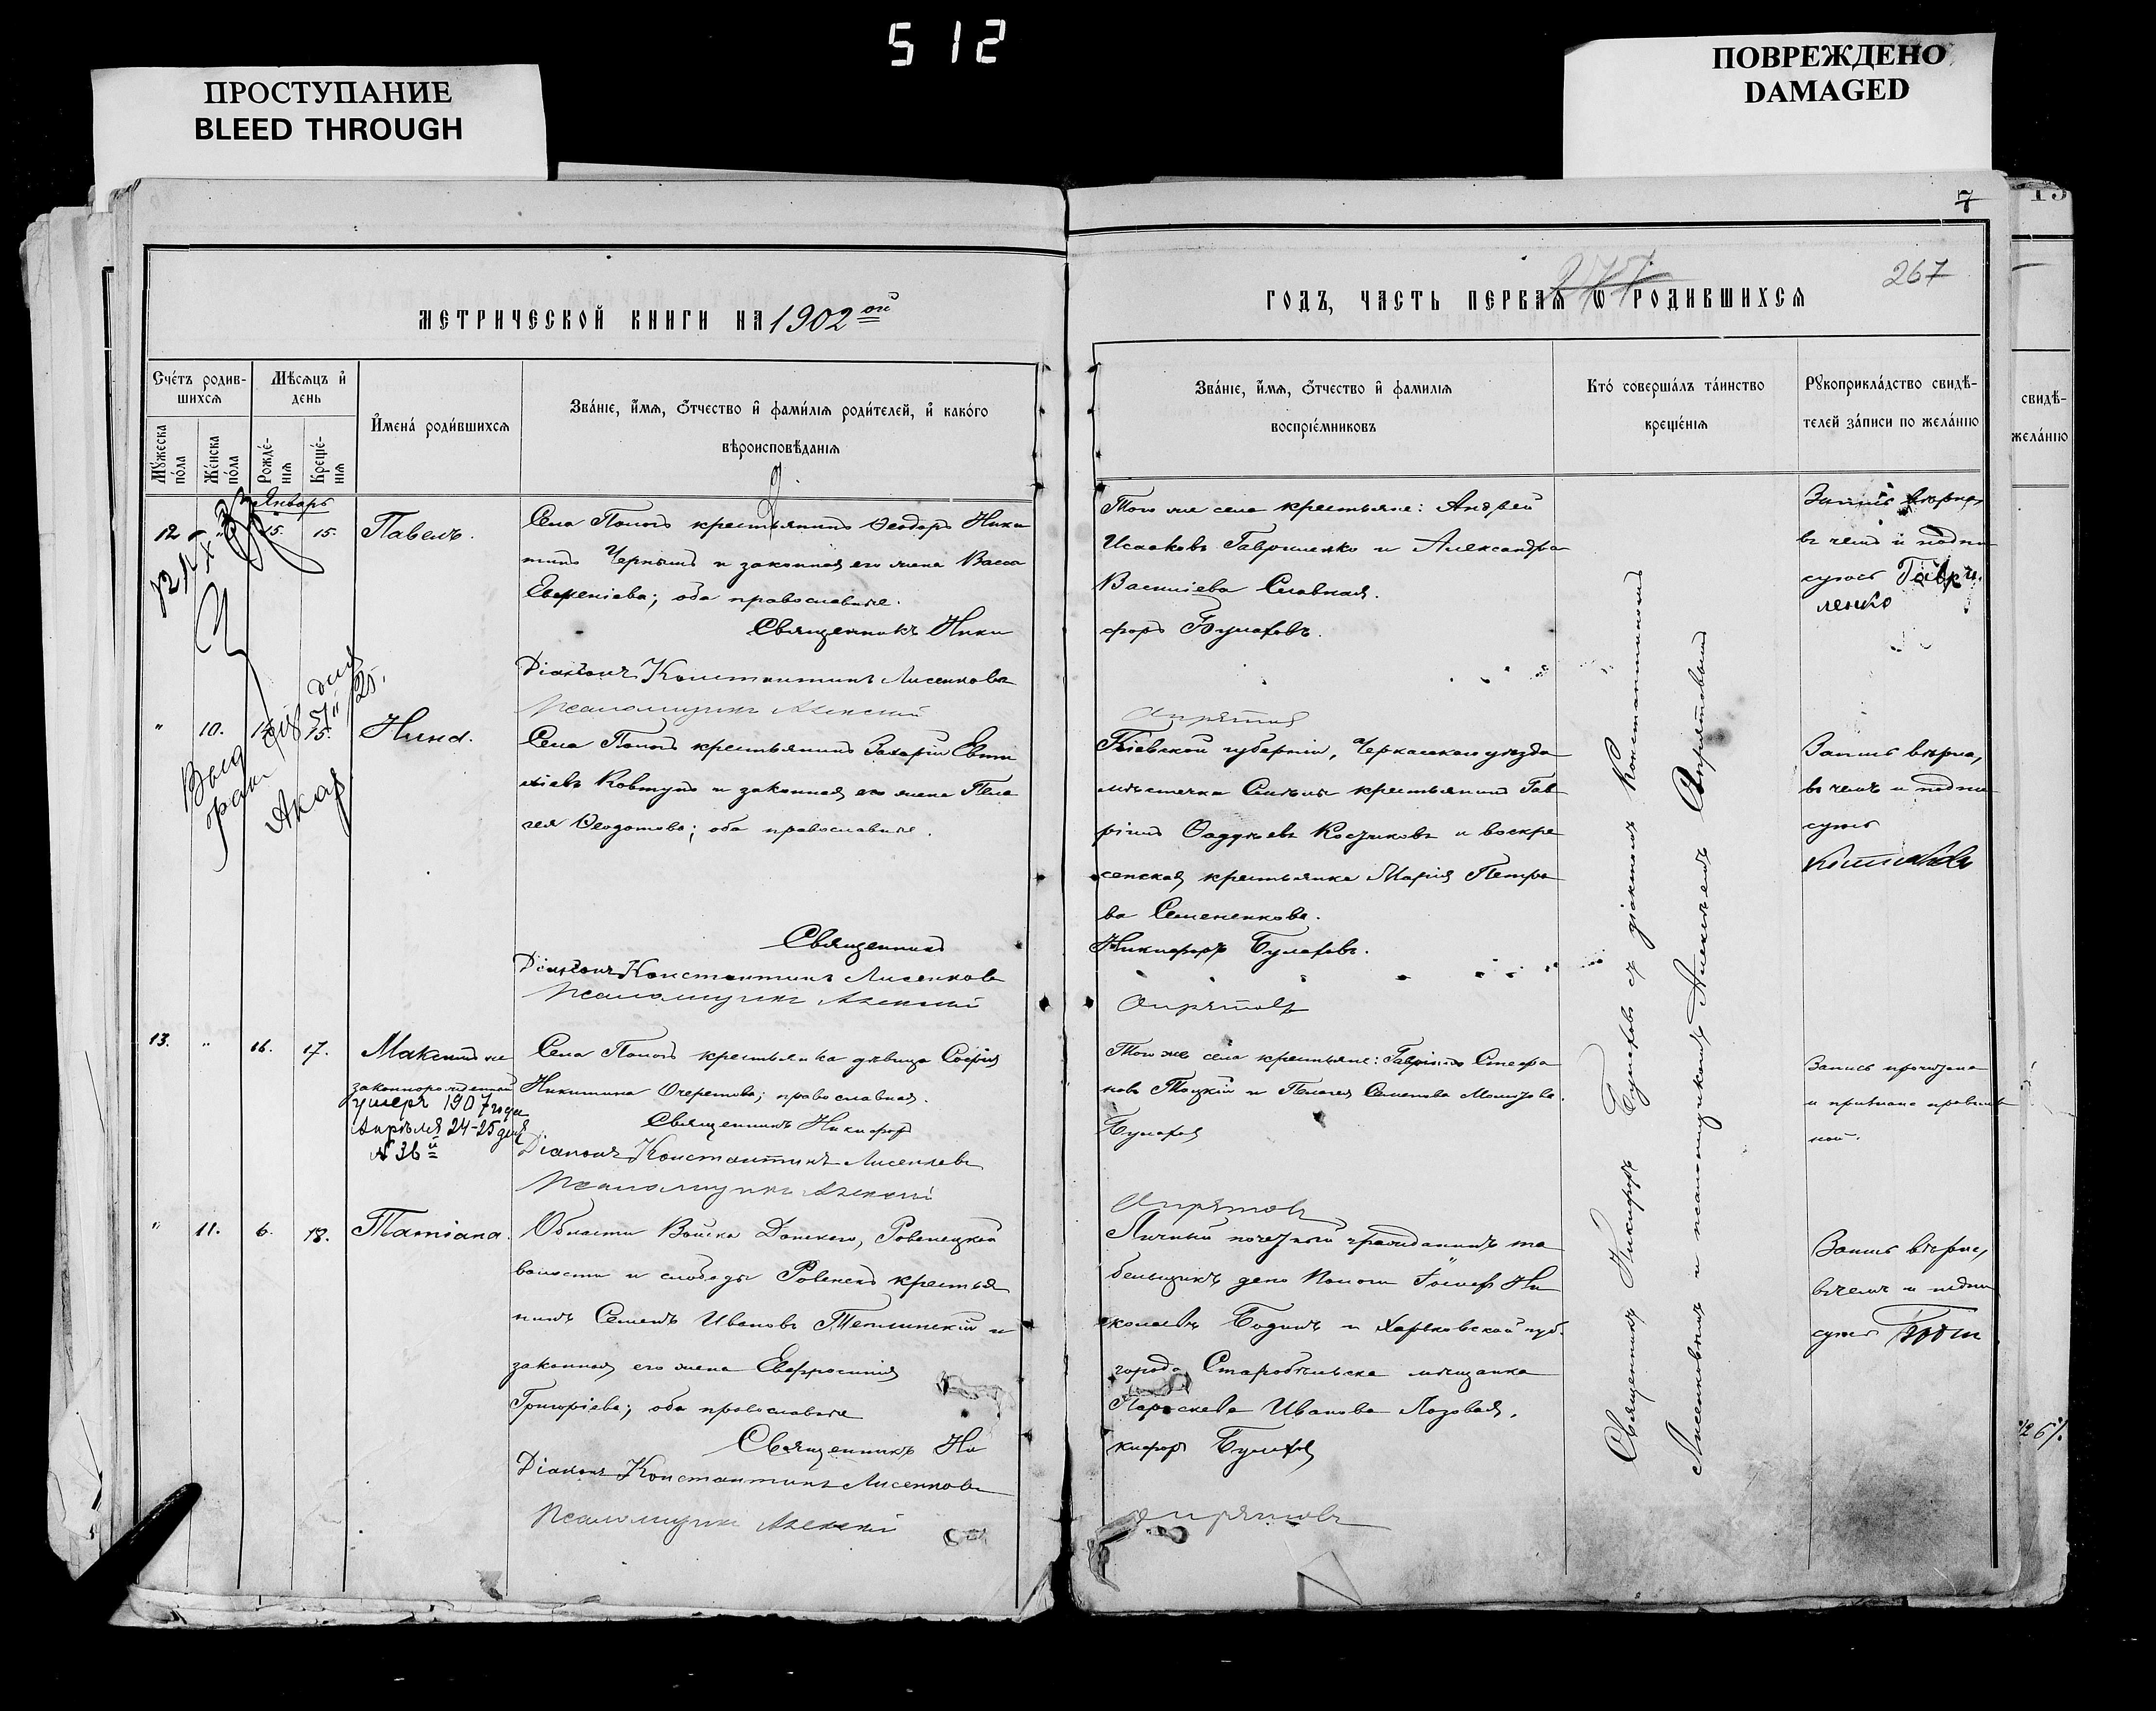 512
ПРОСТУПАНИЕ
BLEED THROUGH
ПОВРЕЖДЕНО
DAMAGED
7
267
МЕТРИЧЕСКОЙ КНИГИ НА 1902 ой
ГОДЪ, ЧАСТЬ ПЕРВАЯ Ѡ РОДИВШИХСЯ
Счетъ родив-
шихся
Мѣсяцъ и
день
Мужеска
пола
Женска
пола
Рожде-
нія
Креще-
нія
Имена родившихся
Званіе, имя, отчество и фамилія родителей, и какого
вѣроисповѣданія
Званіе, имя, отчество и фамилія
воспріемниковъ
Кто совершалъ таинство
крещенія
Рукоприкладство свидѣ-
телей записи по желанію
свидѣ-
желанію
Январь
12 15. 15. Павелъ.
Села Пологъ крестьянинъ Ѳеодоръ Ники
тинъ Чернышъ и законная его жена Васса
Евгеніева; оба православные.
Священникъ Ники
Діаконъ Константинъ Лисенковъ
Псаломщикъ Алексій
Того же села крестьяне: Андрей
Исааковъ Гавриленко и Александра
Василіева Славная.
форъ Булаховъ.
Запись вѣрна,
въ чемъ и подпи
суюсь Гаври
ленко
" 10. 15. Нина.
Села Пологъ крестьянинъ Захарій Евти
хіевъ Ковтунъ и законная его жена Пела
гея Ѳеодотова; оба православные.
Священникъ
Діаконъ Константинъ Лисенковъ
Псаломщикъ Алексій
Кіевской губерніи, Черкасскаго уѣзда
мѣстечка Смѣлы крестьянинъ Гав
ріилъ
и воскре
сенская крестьянка Марія Петро
ва Семененкова.
Никифоръ Булаховъ.
Опрятовъ
Запись вѣрна,
въ чемъ и подпи
суюсь
13. " 16. 17. Максимъ не
законнорожденный
умеръ 1907 года
Апрѣля 24-25 дня
№ 36й
Села Пологъ крестьянка дѣвица Софія
Никитина Очеретова; православная.
Священникъ Никифоръ
Діаконъ Константинъ Лисенковъ
Псаломщикъ Алексій
Того же села крестьяне: Гавріилъ Стефа
новъ Тоцкій и Пелагея Семенова
Булаховъ
Опрятовъ
Запись прочитана
и признана правиль
ной.
" 11. 6. 18. Татіана.
Области Войска Донского, Ровенецкой
волости и слободы Ровенекъ крестья
нинъ Семенъ Ивановъ Теплинскій и
законная его жена Евфросинія
Григоріева; оба православные
Священникъ Ни
Діаконъ Константинъ Лисенковъ
Псаломщикъ Алексій
Личный почетный гражданинъ та
бельщикъ депо Пологи Іосифъ Ни
колаевъ Бодинъ и Харьковской губ.
города Старобѣльска мѣщанка
Параскева Иванова Лозовая.
кифоръ Булаховъ
Опрятовъ
Запись вѣрна,
въ чемъ и подпи
суюсь
Священникъ Никифоръ Булаховъ съ діакономъ Константиномъ
Лисенковымъ и псаломщикомъ Алексѣемъ Опрятовымъ